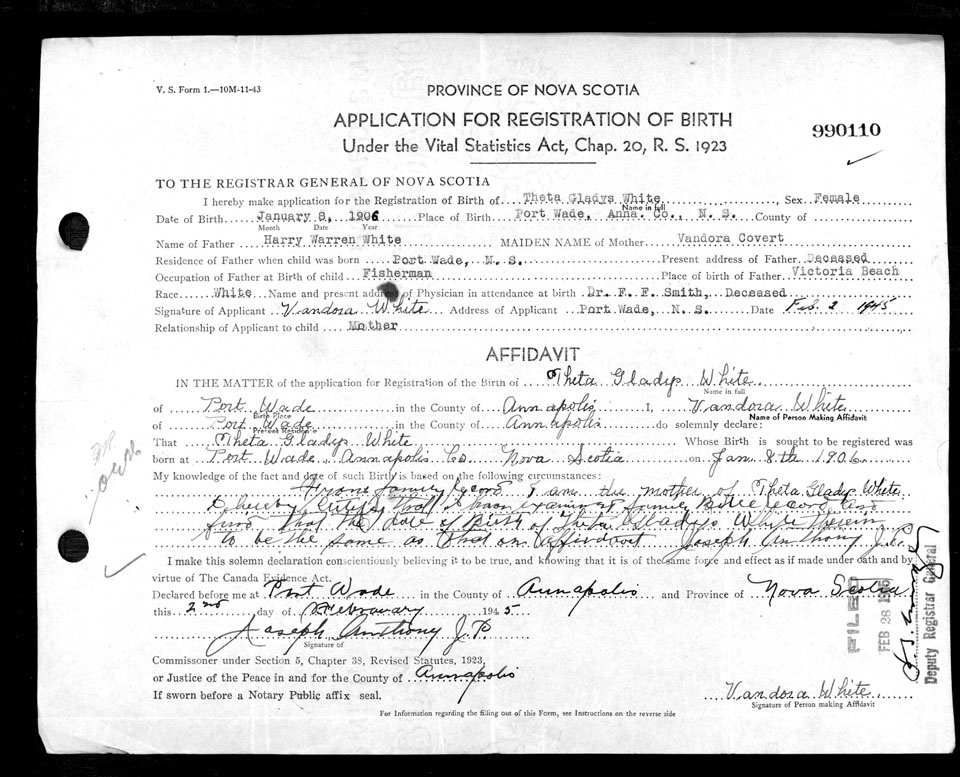 V. S. Form 1.—10M-11-43
PROVINCE OF NOVA SCOTIA
APPLICATION FOR REGISTRATION OF BIRTH
Under the Vital Statistics Act, Chap. 20, R. S. 1923
990110
TO THE REGISTRAR GENERAL OF NOVA SCOTIA
I hereby make application for the Registration of Birth of Theta Gladys White, Sex Female
Name in full
Date of Birth January 8, 1906 Place of Birth Port Wade, Anna. Co., N. S. County of
Month Date Year
Name of Father Harry Warren White MAIDEN NAME of Mother Vandora Covert
Residence of Father when child was born Port Wade, N. S. Present address of Father Deceased
Occupation of Father at Birth of child Fisherman Place of birth of Father Victoria Beach
Race White Name and present address of Physician in attendance at birth Dr. F. F. Smith, Deceased
Signature of Applicant Vandora White Address of Applicant Port Wade, N. S. Date Feb. 2 1945
Relationship of Applicant to child Mother
AFFIDAVIT
IN THE MATTER of the application for Registration of the Birth of Theta Gladys White
Name in full
of Port Wade in the County of Annapolis I, Vandora White
Birth Place Name of Person Making Affidavit
of Port Wade in the County of Annapolis do solemnly declare:
Present Residence
That Theta Gladys White Whose Birth is sought to be registered was
born at Port Wade Annapolis Co Nova Scotia on Jan 8th 1906
My knowledge of the fact and date of such Birth is based on the following circumstances:
family record I am the mother of Theta Gladys White
I hereby certify that I have examined family Bible record and
find that the date of Birth of Theta Gladys White therein
to be the same as that on affidavit Joseph Anthony J.P.
I make this solemn declaration conscientiously believing it to be true, and knowing that it is of the same force and effect as if made under oath and by
virtue of The Canada Evidence Act.
Declared before me at Port Wade in the County of Annapolis and Province of Nova Scotia
this 2nd day of February 1945
Joseph Anthony J.P
Signature of
Commissioner under Section 5, Chapter 38, Revised Statutes, 1923,
or Justice of the Peace in and for the County of Annapolis
If sworn before a Notary Public affix seal.
Vandora White
Signature of Person making Affidavit
For Information regarding the filling out of this Form, see Instructions on the reverse side
FILED
FEB 28 1945
Deputy Registrar General